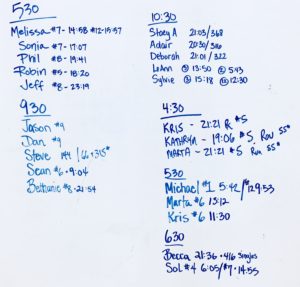 530
Melissa #7 - 14:58 #12-15:57
Sonia #7 - 17:07
Phil #8 - 19:41
Robin #5 - 18:20
Jeff #8 - 23:19
930
Jason #9
Dan #9
Steve #4 / 6 · 315*
Sean #6 · 9:04
Bethanie #8 - 21:54
10:30
Stacy A 21:03/368
Adair 20:30/310
Deborah 21:01/322
LeAnn 13:50 5:43
Sylvie 15:18 12:30
4:30
KRIS - 21:21 R #5
KATHRYN - 19:06 #5, Row 55"
MARTA - 21:21 #5 Run 55"
530
Michael #1 5:42/#12 9:53
Marta #6 13:12
Kris #6 11:30
630
Becca 21:36 · 416 singles
Sol #4 6:05/#7 · 14:55